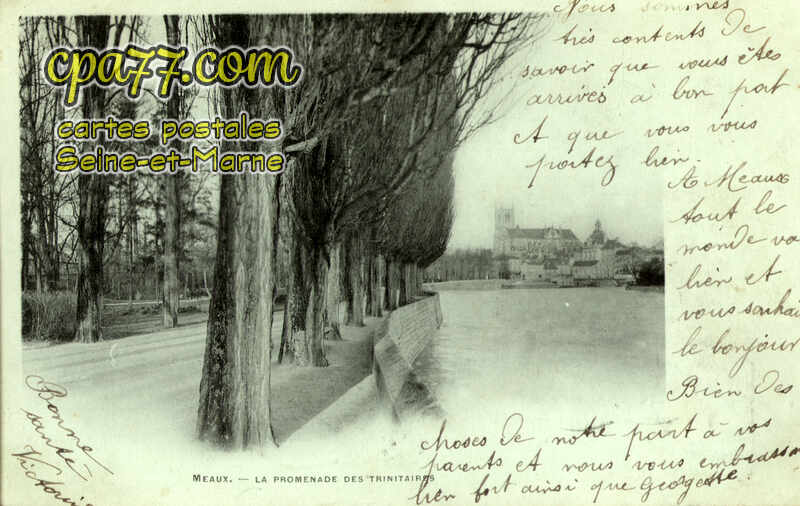 cpa77.com
cartes postales
Seine-et-Marne
Nous sommes
très contents de
savoir que vous êtes
arrivés à bon port
et que vous vous
portez bien.
A Meaux
tout le
monde va
bien et
vous souhai
le bonjour
Bien des
choses de notre part à vos
parents et nous vous embrasson
bien fort ainsi que Georgette.
Bonne
santé
Victoria
MEAUX. — LA PROMENADE DES TRINITAIRES